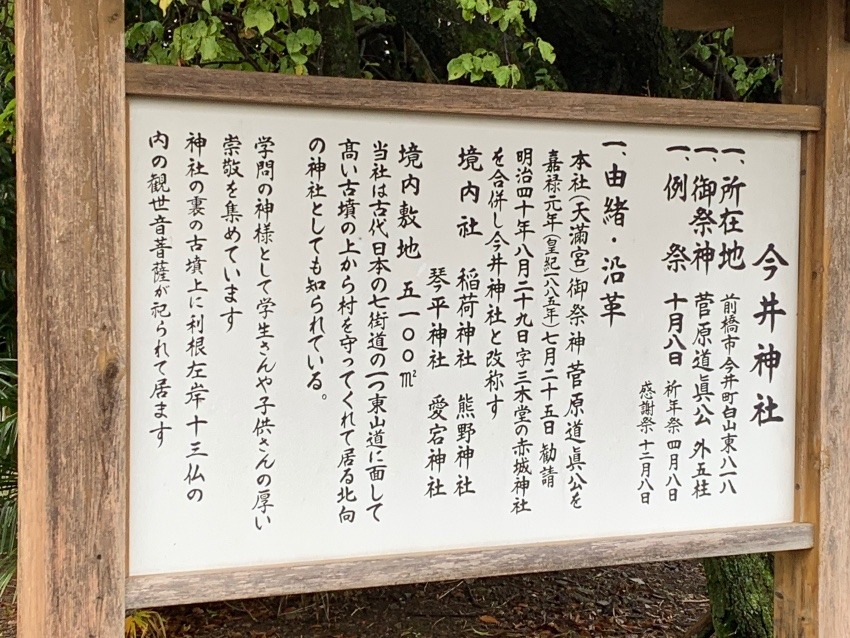 今井神社
一、所在地 前橋市今井町白山東八一八
一、御祭神 菅原道眞公 外五柱
一、例祭 十月八日 祈年祭 四月八日
感謝祭 十二月八日
一、由緒・沿革
本社(天滿宮)御祭神菅原道眞公を
嘉禄元年(皇紀一八八五年)七月二十五日 勧請
明治四十年八月二十九日字三木堂の赤城神社
を合併し今井神社と改称す
境内社 稲荷神社 熊野神社
琴平神社 愛宕神社
境内敷地 五一〇〇㎡
当社は古代日本の七街道の一つ東山道に面して
髙い古墳の上から村を守ってくれて居る北向
の神社としても知られている。
学問の神様として学生さんや子供さんの厚い
崇敬を集めています
神社の裏の古墳上に利根左岸十三仏の
内の観世音菩薩が祀られて居ます